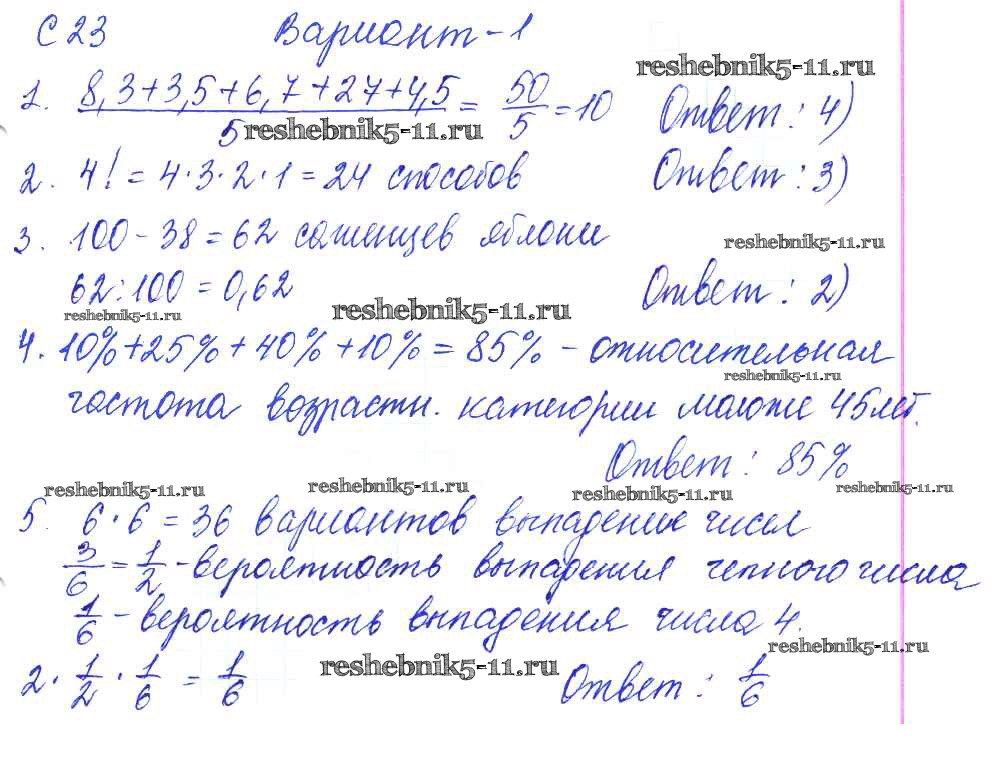 С 23 Вариант-1
reshebnik5-11.ru
1. 8,3+3,5+6,7+27+4,5 / 5 = 50/5 = 10 Ответ: 4)
reshebnik5-11.ru
2. 4! = 4·3·2·1 = 24 способов Ответ: 3)
3. 100-38=62 саженцев яблони
reshebnik5-11.ru
62:100 = 0,62 Ответ: 2)
reshebnik5-11.ru reshebnik5-11.ru
4. 10%+25%+40%+10%=85% - относительная
reshebnik5-11.ru
частота возрастн. категории моложе 45 лет.
Ответ: 85%
reshebnik5-11.ru reshebnik5-11.ru reshebnik5-11.ru reshebnik5-11.ru
5. 6·6 = 36 вариантов выпадение чисел
3/6 = 1/2 - вероятность выпадения четного числа
1/6 - вероятность выпадения числа 4.
reshebnik5-11.ru
2 · 1/2 · 1/6 = 1/6 Ответ: 1/6
reshebnik5-11.ru